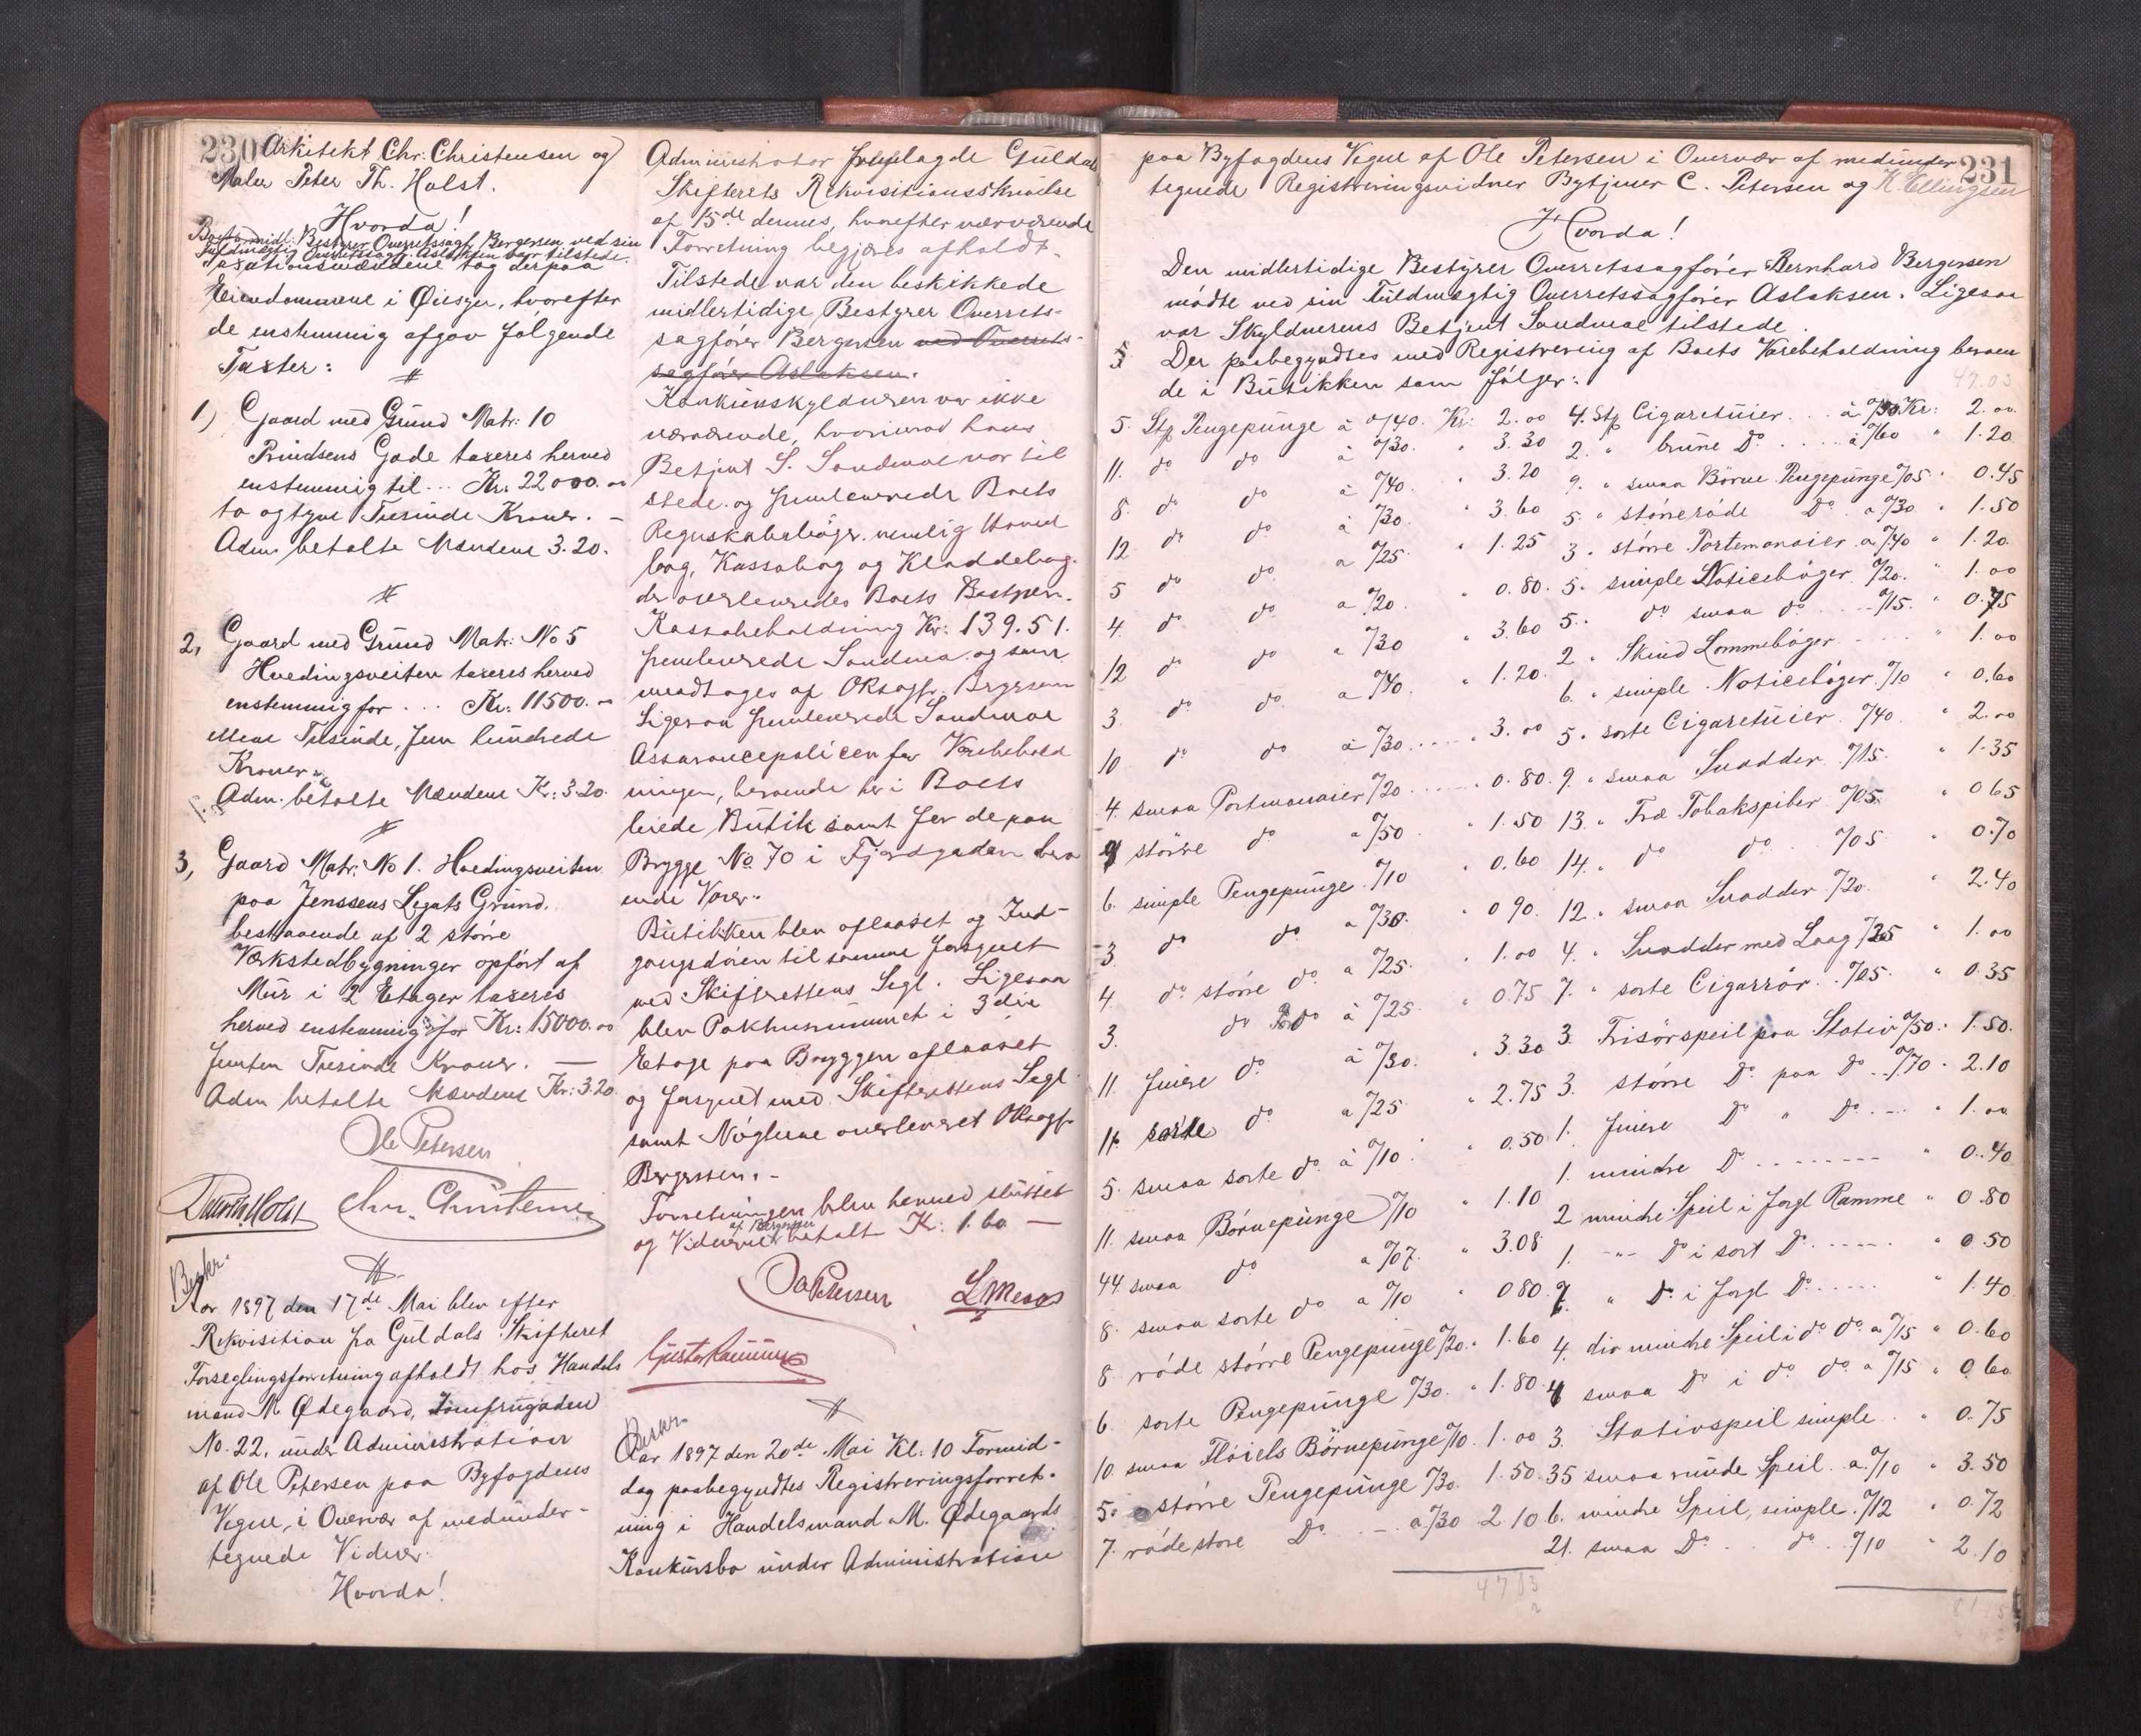 230
Arkitekt Chr. Christensen og
Maler Peter Th. Holst.
Hvorda!
Bestyrer Overretssagf. Bergersen ved sin
Fuldmægtig Overretssagf. Aslaksen var tilstede.
Taxationsmændene tog derpaa
Eiendommene i Øiesyn, hvorefter
de enstemmig afgav følgende
Taxter:
1) Gaard med Grund Matr: 10
Prindsens Gade taxeres herved
enstemmig til... Kr. 22000.00
to og tyve Tusinde Kroner. —
Adm. betalte Mændene 3.20.
2, Gaard med Grund Matr: No 5
Hvedingsveiten taxeres herved
enstemmig for ... Kr. 11500.-
elleve Tusinde, fem hundrede
Kroner.
Adm. betalte Mændene Kr: 3.20.
3, Gaard Matr. No 1. Hvedingsveiten
paa Jenssens Legats Grund,
bestaaende af 2 større
Værkstedbygninger opført af
Mur i 2 Etager taxeres
herved enstemmig for Kr: 15000.00
femten Tusinde Kroner. —
Adm betalte Mændene Kr: 3.20.
Ole Petersen
Peter Th. Holst Chr. Christensen
Beskr.
Aar 1897 den 17de Mai blev efter
Rekvisition fra Guldals Skifteret
Forseglingsforretning afholdt hos Handels
mand M. Ødegaard, Jomfrugaden
No. 22, under Administration
af Ole Petersen paa Byfogdens
Vegne, i Overvær af medunder-
tegnede Vidner.
Hvorda!
Administrator fremlagde Guldals
Skifterets Rekvisitionsskrivelse
af 15de dennes, hvorefter nærværende
Forretning begjæres afholdt.
Tilstede var den beskikkede
midlertidige Bestyrer Overrets-
sagfører Bergersen ved Overrets-
sagfører Aslaksen.
Konkursskyldneren var ikke
nærværende, hvorimod hans
Betjent S. Sandmoe var til
stede og fremleverede Boets
Regnskabsbøger, nemlig Hoved
bog, Kassabog og Kladdebog.
der overleveredes Boets Bestyrer.
Kassabeholdning Kr: 139.51.
fremleverede Sandmoe og som
modtages af ORsagfr. Bergersen
Ligesaa fremleverede Sandmoe
Assurancepolicen for Varebehold
ningen, beroende her i Boets
leiede Butik samt for de paa
Brygge No 70 i Fjordgaden bero
ende Varer.
Butikken blev aflaaset og Ind-
gangsdøren til samme forseglet
med Skifterettens Segl. Ligesaa
blev Pakhusrummet i 3die
Etage paa Bryggen aflaaset
og forseglet med Skifterettens Segl
samt Nøglerne overleveret ORsagf.
Bergersen. -
Forretningen blev hermed sluttet
og Vidnerne af Bergersen betalt Kr: 1.60 —
O. Petersen L. Moen
Beskr.
Aar 1897 den 20de Mai Kl: 10 Formid-
dag paabegyndtes Registreringsforret-
ning i Handelsmand M. Ødegaards
Konkursbo under Administration
231
paa Byfogdens Vegne af Ole Petersen i Overvær af medunder
tegnede Registreringsvidner Bytjener C. Petersen og K. Ellingsen
Hvorda!
Den midlertidige Bestyrer Overretssagfører Bernhard Bergersen
mødte ved sin Fuldmægtig Overretssagfører Aslaksen. Ligesaa
var Skyldnerens Betjent Sandmoe tilstede.
§ Der paabegyndtes med Registrering af Boets Varebeholdning beroen
de i Butikken som følger:
47.03
5. Stk Pengepunge à %40. Kr: 2.00
11. do do à %30. " 3.30
8. do do à %40. " 3.20
12 do do à %30. " 3.60
5 do do a %25. " 1.25
4. do do a %20. " 0.80.
12 do do a %30 " 3.60
3. do do a %40. " 1.20.
10 do do à %30. .... " 3.00
4. smaa Portmonaier %20 .... " 0.80.
større do a %50 " 1.50
6. simple Pengepunge. %10 " 0.60
3 do do a %30. " 0 90.
4 do større do a %25. " 1.00
3. do do à %25. " 0.75
11. finere do à %30. " 3.30
11. sorte do a %25 " 2.75
5. smaa sorte do à %10. " 0.50
11. smaa Børnepunge %10 " 1.10
44. smaa do a %07. " 3.08
8. smaa sorte do a %10 " 0 80.
8. røde større Pengepunge %20. " 1.60
6 sorte Pengepunge %30. " 1.80.
10. smaa Fløiels Børnepunge %10. 1.00
5. større Pengepunge %30. 1.50.
7. røde store Do .. - a %30 2.10
4703
4. Stk Cigaretuier ... à %50 Kr: 2.00.
2. " brune Do .... à %60 " 1.20
9. " smaa Børne Pengepunge %05 " 0.45
5. " større røde Do a %30 " 1.50
3. " større Portemonaier a %40 " 1.20.
5. simple Noticebøger. %20. " 1.00
5. " do smaa do .... %15. " 0.75
2 " Skind Lommebøger .... " 1.00
6. " simple Noticebøger. %10 " 0.60
5. sorte Cigaretuier. %40. " 2.00
9. " smaa Snadder. %15. " 1.35
13. " Træ Tobakspiber. %05. " 0 65
14. " do do. %05. " 0.70
12. " smaa Snadder. %20. " 2.40
4. " Snadder med Laag %25 " 1.00
7. " sorte Cigarrør. %05. " 0.35
3. Frisørspeil paa Stativ %50. 1.50.
3. større Do paa Do .. %70 . 2.10
1. finere Do " Do .-.- " 1.00
1. mindre Do -------- " 0.40
2 mindre Speil i forgl Ramme " 0.80
1. -"- Do i sort Do ........ " 0.50
7. " Do i forgl Do ..... " 1.40
4. div mindre Speil i do do a %15 " 0.60
4 smaa Do i do do a %15 " 0 60
3. Stativspeil simple .. " 0.75
35 smaa runde Speil. a %10 " 3.50
6. mindre Speil, simple. %12 " 0.72
21. smaa Do .. do .. %10 " 2.10